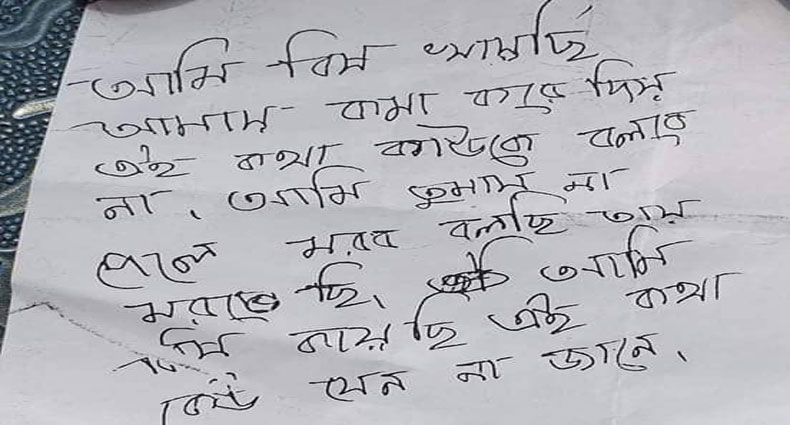 আমি বিস খায়ছি
আমায় কামা করে দিয়
এই কথা কাউকে বলবে
না, আমি তুমায় না
পেলে মরব বলছি তায়
মরতেছি, আমি
বিস খায়ছি এই কথা
কেউ যেন না জানে,